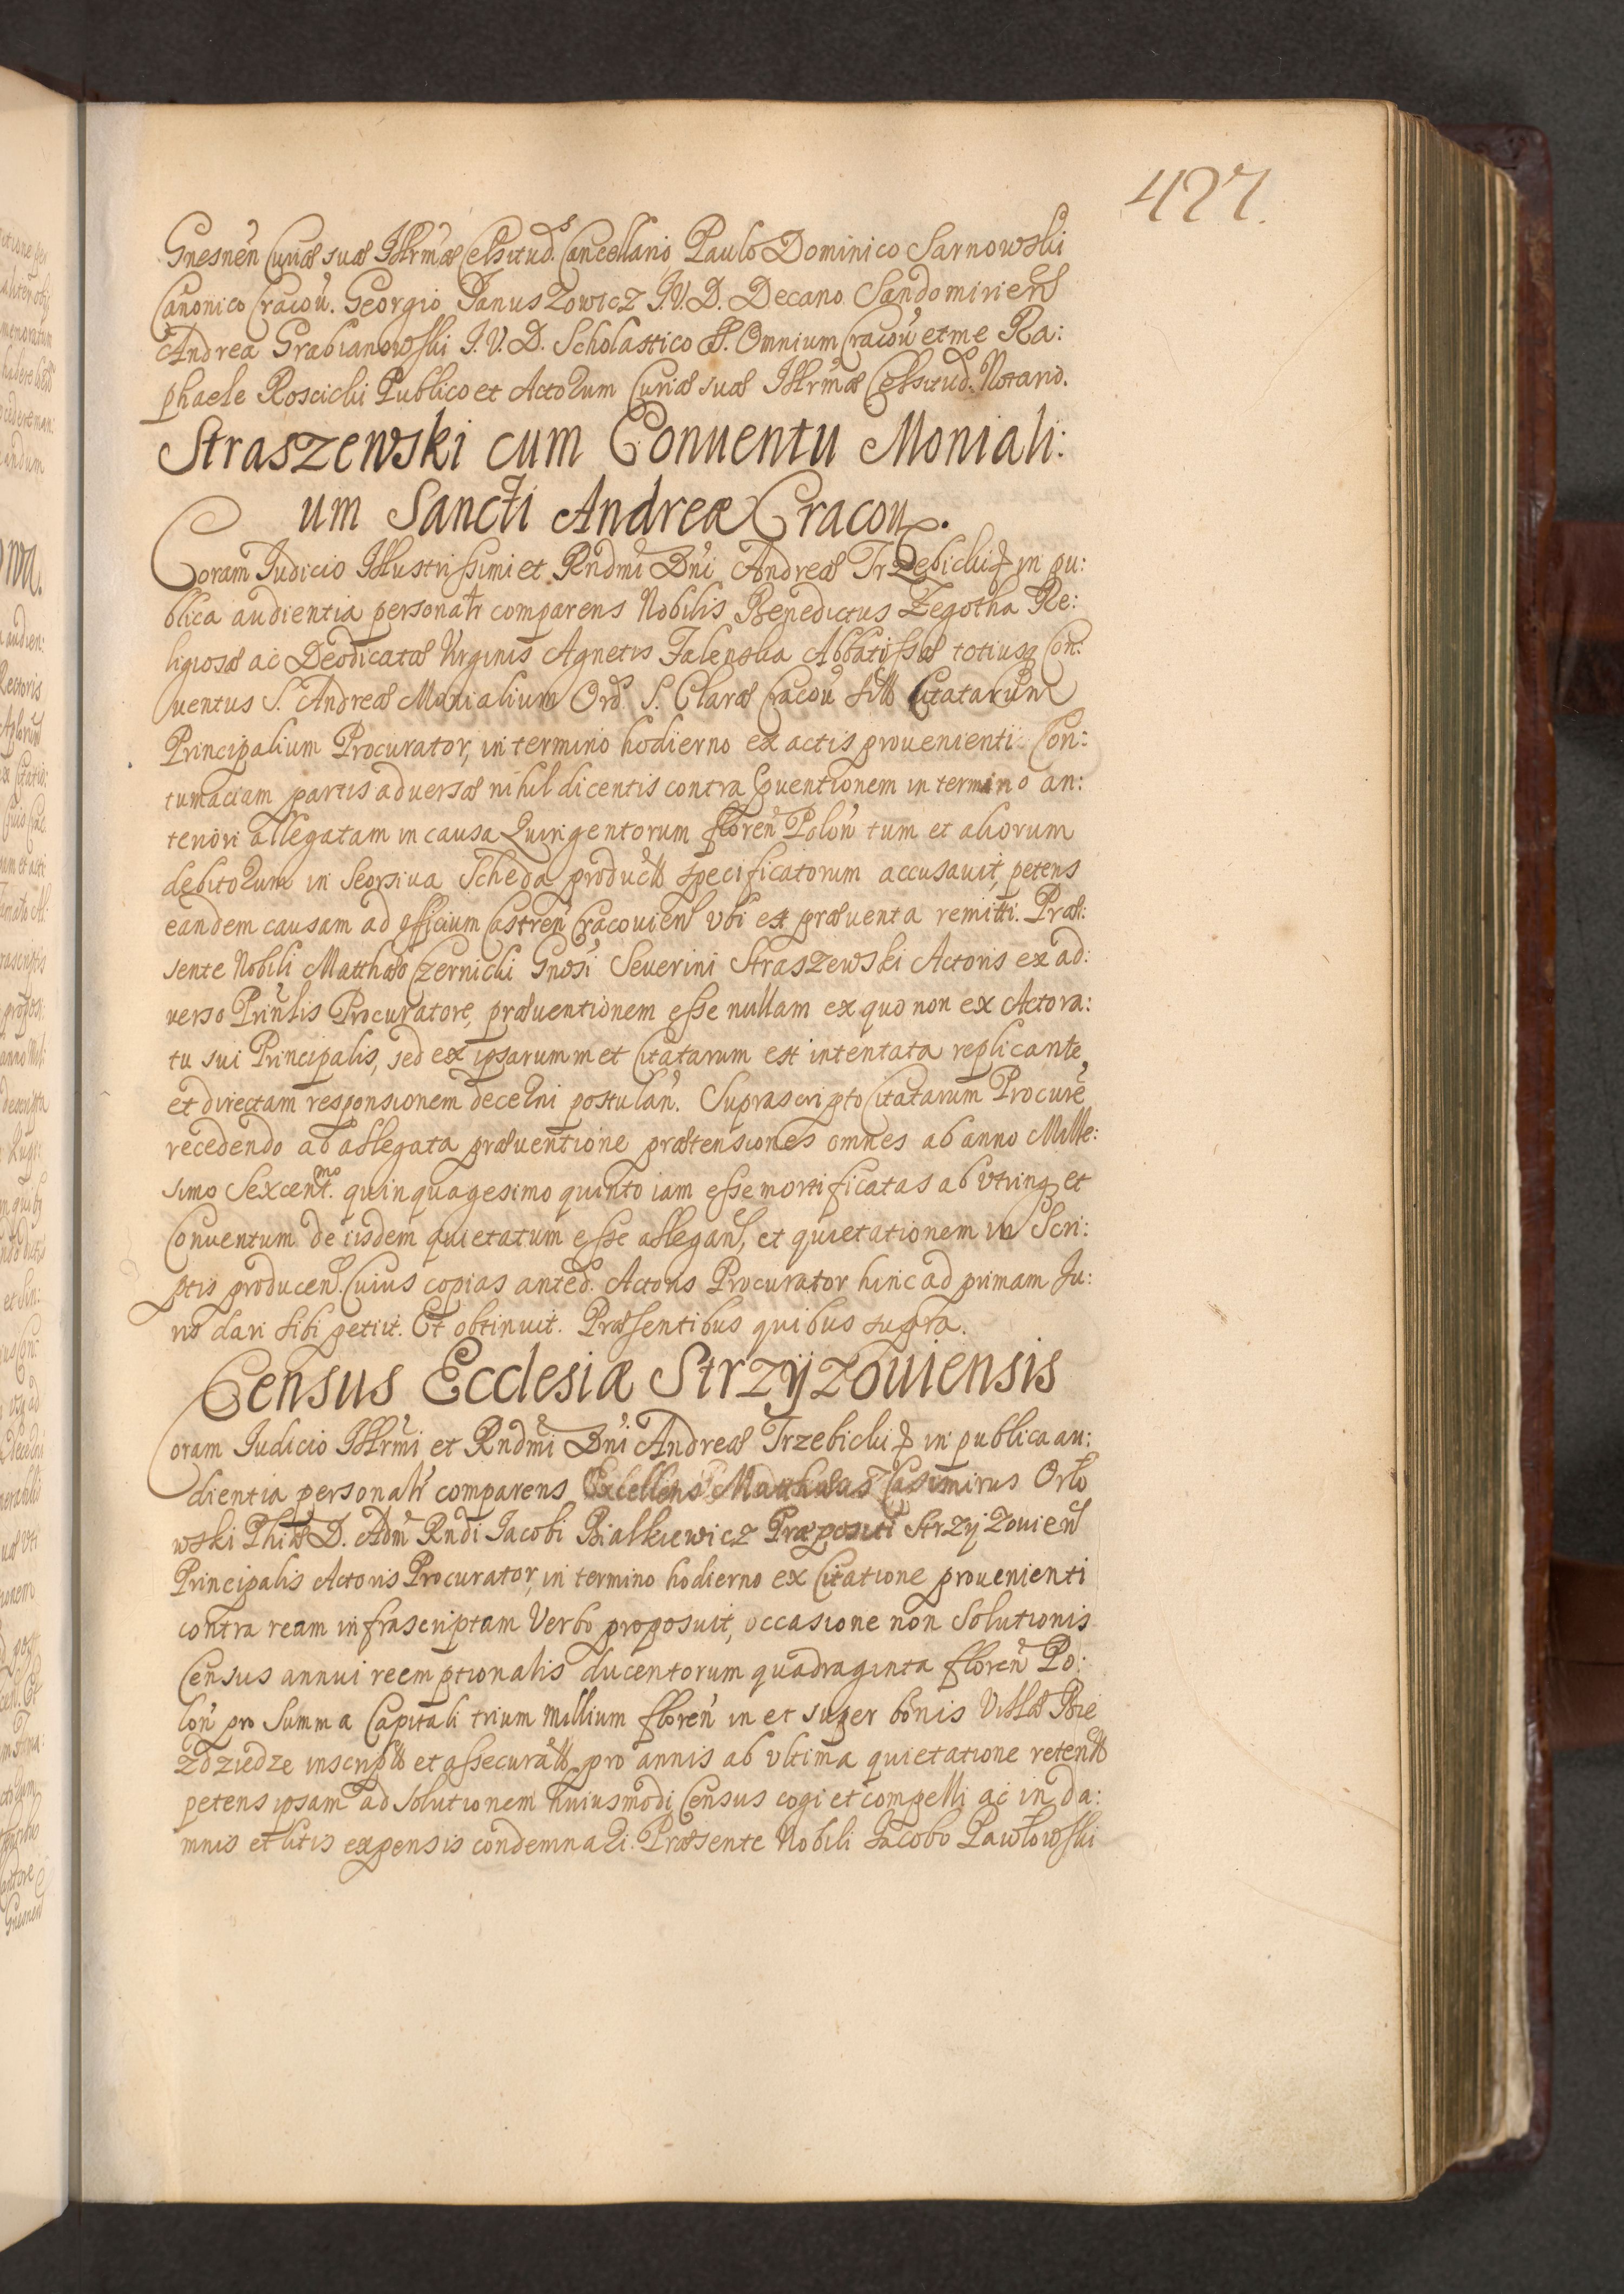 427.
Gnesnen Curiæ suæ Illrmæ Celsitud. Cancellario Paulo Dominico Sarnowski
Canonico Cracou. Georgio Januszowicz J.V.D. Decano Sandomirien
Andrea Grabianowski J.V.D. Scholastico SS. Omnium Cracou et me Ra:
phaele Roscicki Publico et Actorum Curiæ suæ Illrmæ Celsitud. Notario.
Straszewski cum Conuentu Moniali:
um Sancti Andreæ Cracou.
Coram Judicio Illustrissimi et Rndmi Dni Andreæ Trzebicki in pu:
blica audientia personatr comparens Nobilis Benedictus Zegotha Re:
ligiosæ ac Deodicatæ Virginis Agnetis Jalenska Abbatissæ totiusq Con:
uentus S. Andreæ Monialium Ord. S. Claræ Cracou Citatarum
Principalium Procurator, in termino hodierno ex actis prouenienti Con:
tumaciam partis aduersæ nihil dicentis contra Conuentionem in termino an:
teriori allegatam in causa Quingentorum floren Polon tum et aliorum
debitorum in Seorsiua Scheda product specificatorum accusauit, petens
eandem causam ad officium Castren Cracouien vbi est præuenta remitti. Præ:
sente Nobili Matthæo Czernicki Gnosi Seuerini Straszewski Actoris ex ad:
verso Prinlis Procuratore, præuentionem esse nullam ex quo non ex Actora:
tu sui Principalis, sed ex ipsarummet Citatarum est intentata replicante,
et directam responsionem decerni postulan. Suprascripto Citatarum Procure
recedendo ab allegata præuentione prætensiones omnes ab anno Mille:
simo Sexcent.mo quinquagesimo quinto iam esse mortificatas ab vtrinq et
Conuentum de iisdem quietatum esse allegan, et quietationem in Scri:
ptis producen. Cuius copias anted. Actoris Procurator hinc ad primam Ju:
ris dari sibi petiit. Et obtinuit. Præsentibus quibus supra.
Census Ecclesiæ Strzyżouiensis
Coram Iudicio Illrmi et Rndmi Dni Andreæ Trzebicki in publica au:
dientia personatr comparens Excellens Matthæas Casimirus Orło
wski Phiæ D. Adm Rndi Jacobi Białkiewicz Præpositi Strzyżouien
Principalis Actoris Procurator, in termino hodierno ex Citatione prouenienti
contra ream infrascriptam Verbo proposuit, occasione non Solutionis
Census annui reemptionalis ducentorum quadraginta floren Po:
lon pro Summa Capitali trium Millium floren in et super bonis Villæ Bie
zdziedze inscript et assecurat, pro annis ab vltima quietatione retent
petens ipsam ad solutionem huiusmodi Census cogi et compelli ac in da:
mnis et litis expensis condemnari. Præsente Nobili Jacobo Pawłowski